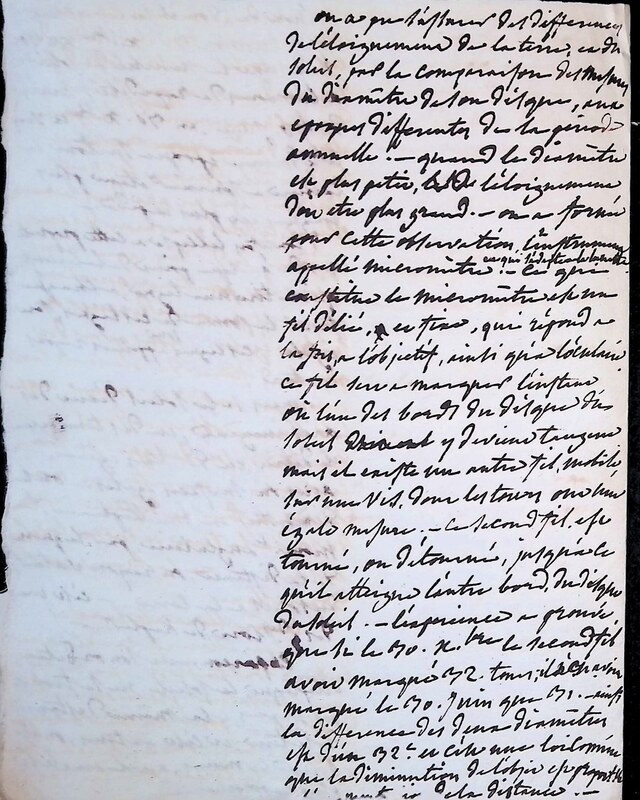 on a pu s'assurer des différences
de l'éloignement de la terre, en du
soleil, par la comparaison des mesures
du diamètre de son disque, aux
epoques differentes de la période
annuelle. — quand le diamètre
est plus petit, l'éloignement
doit etre plus grand. — on a
pour cette observation, l'instrument
appellé micromètre. — ce qui
constitue le micromètre est un
fil délié, et fixe, qui répond a
la fois, a l'objectif, ainsi qu'a l'oculaire
ce fil sert a marquer l'instant
où l'un des bords du disque du
soleil y devient tangent
mais il existe un autre fil, mobile,
sur une vis, dont les tours ont une
égale mesure. — ce second fil, est
tourné, ou détourné, jusqu'a ce
qu'il atteigne l'autre bord, du disque
du soleil. — l'expérience a prouvé,
que si le 30. Xbre le second fil
avoit marqué 32. tours, il avoir
marqué le 30. juin que 31. — ainsi
la difference des deux diamètres
est d'un 32e et c'est une loi connue
que la diminution de l'objet est
de la distance. —